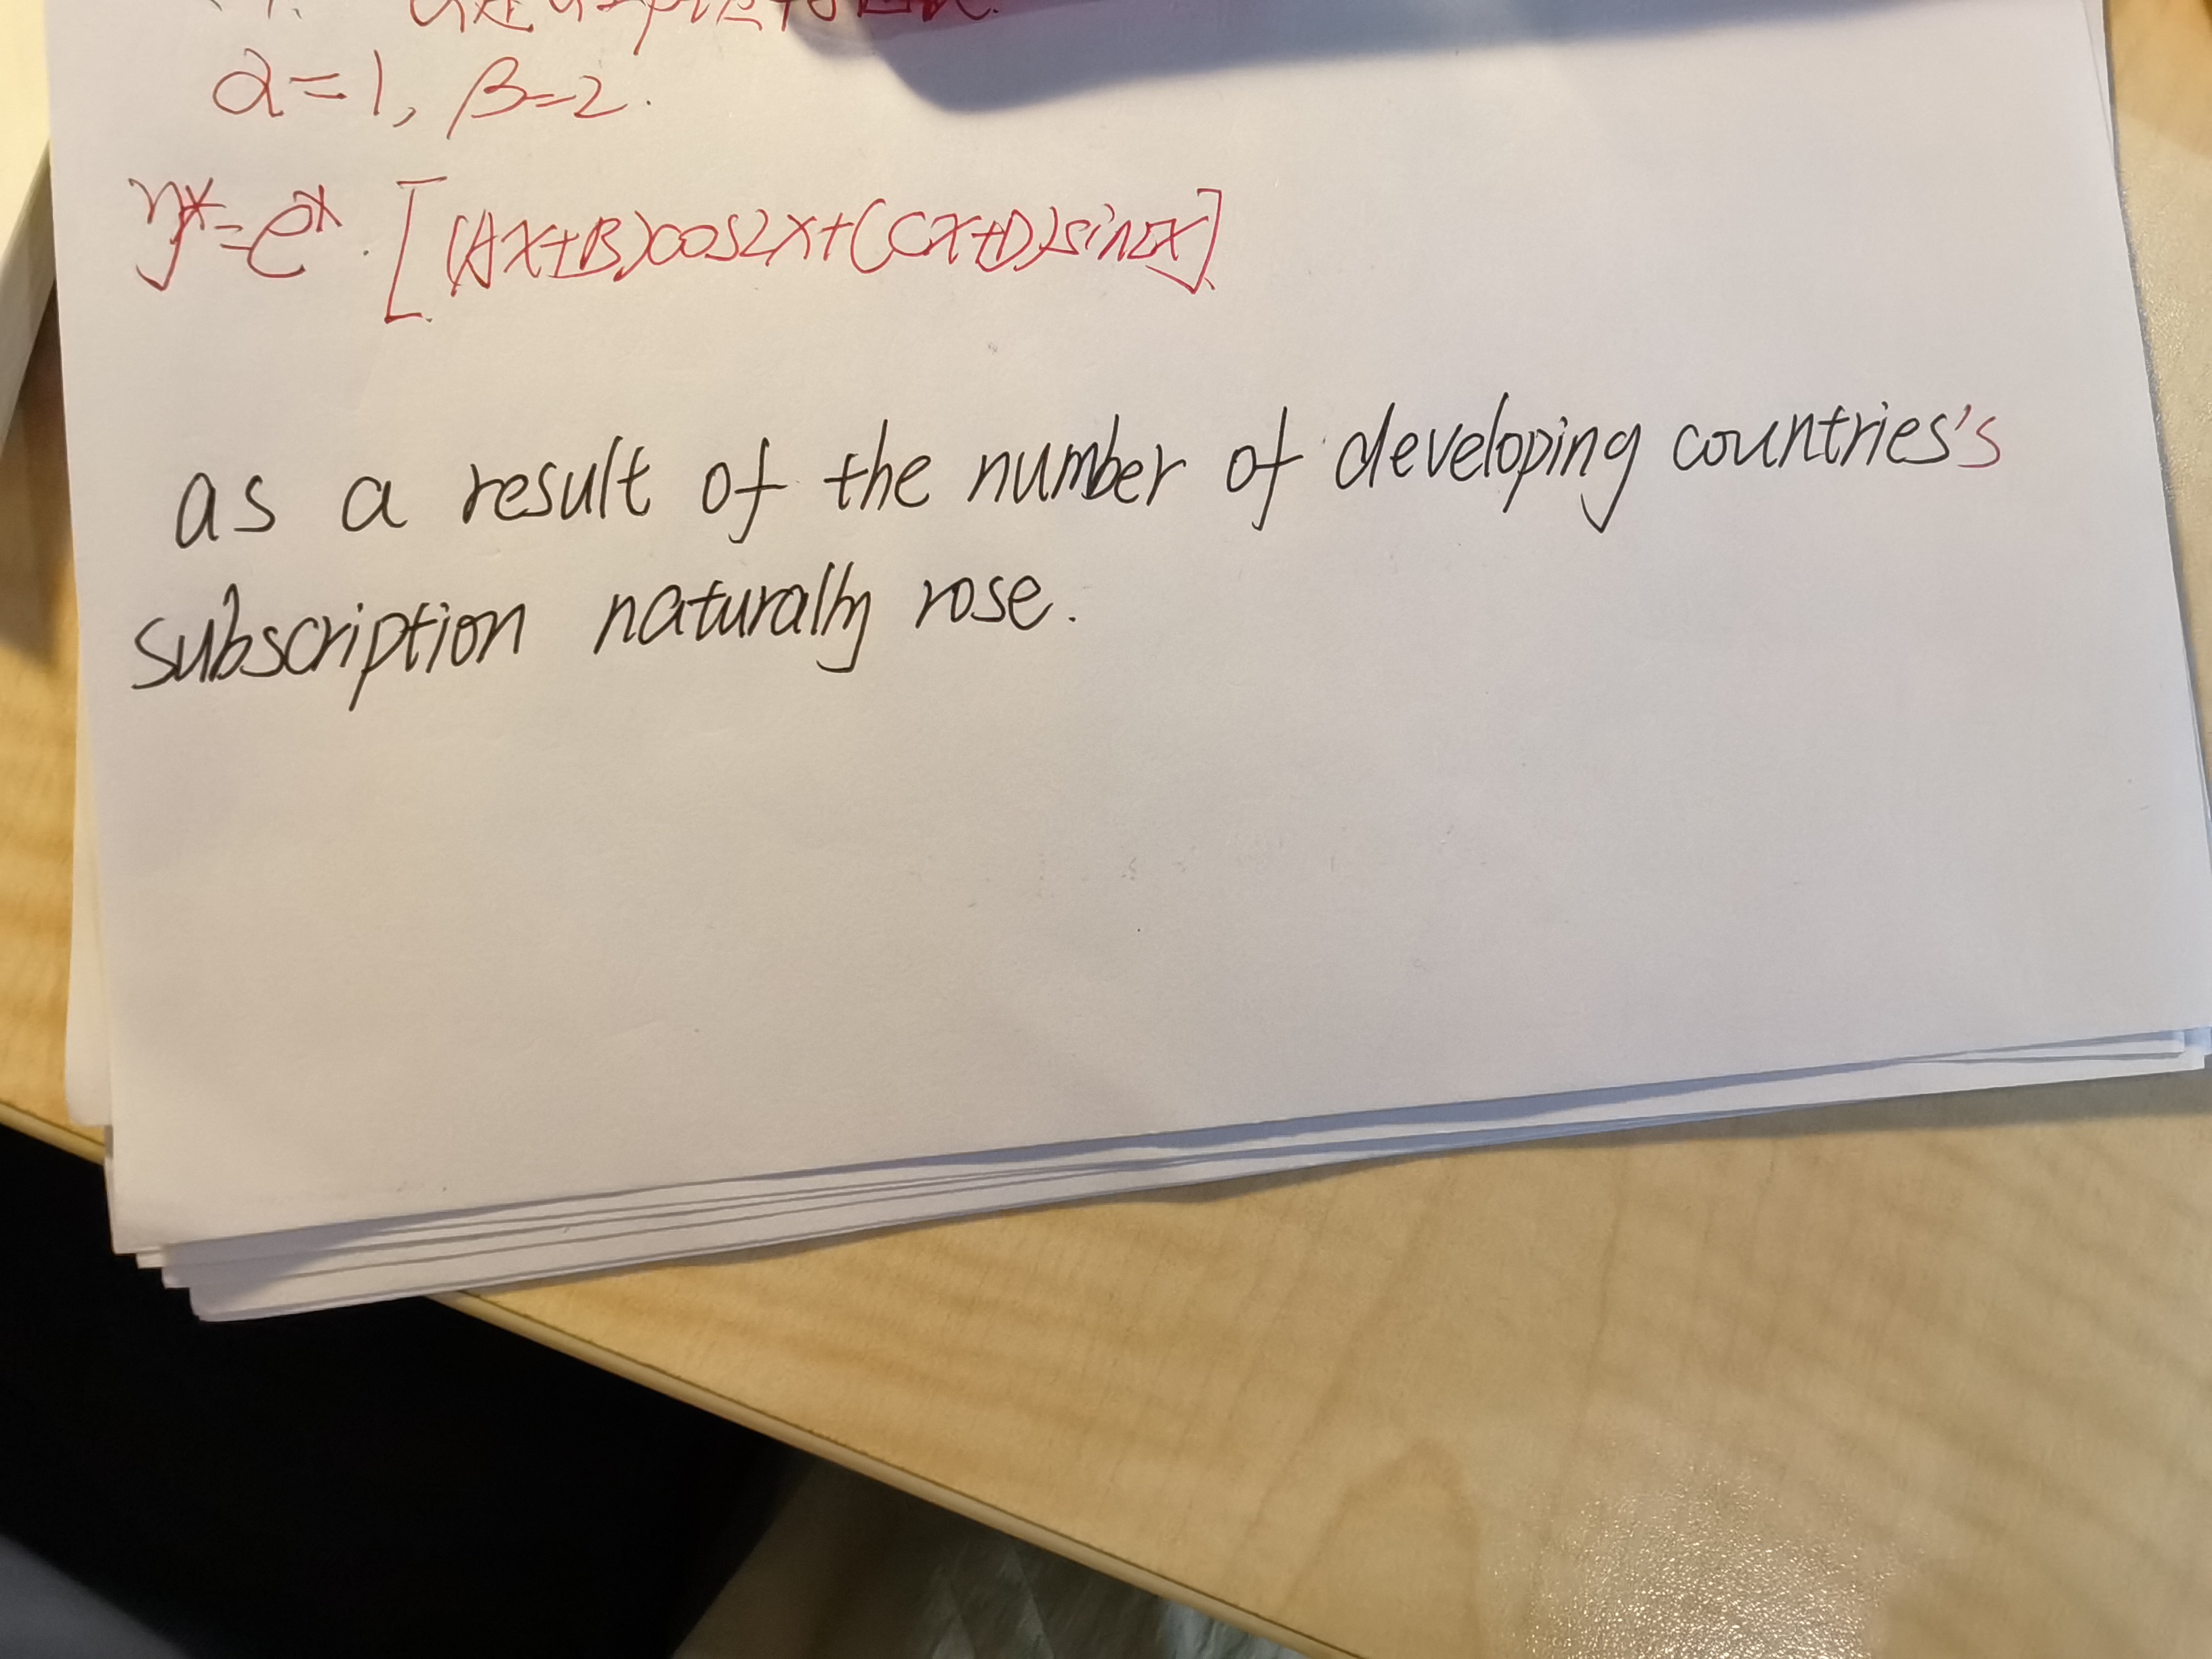 α=1, β=2.
y*=eˣ·[(Ax+B)cos2x+(Cx+D)sin2x]
as a result of the number of developing countries's
subscription naturally rose.